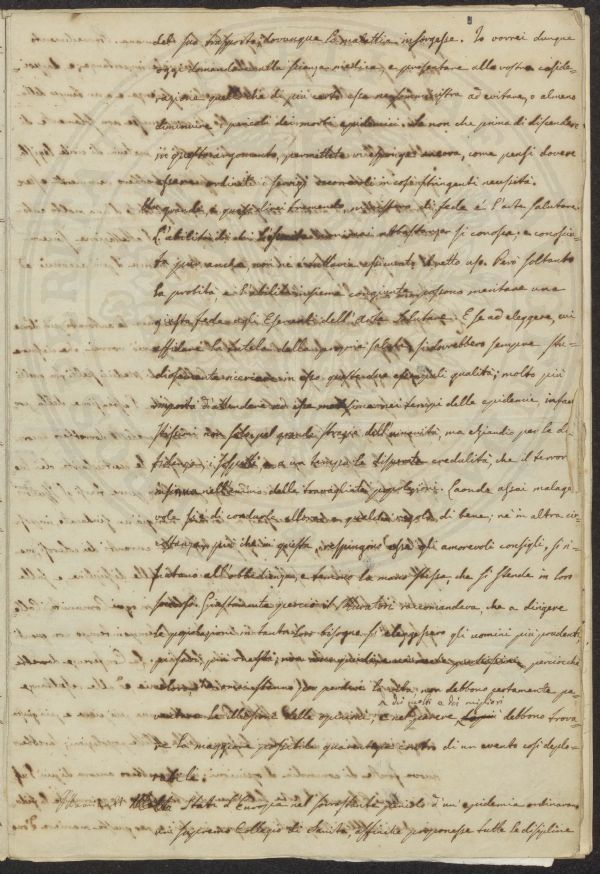 del suo trasporto, dovunque la malattia insorgesse. Io vorrei dunque
oggi domandare alla scienza medica, e presentare alla vostra conside-
razione quello che di più certo essa ne somministra ad evitare, o almeno
diminuire i pericoli dei morbi epidemici. Se non che prima di discendere
in questo argomento, permettete vi esponga ancora, come pensi dovere
essere ordinati i servigi secondarii in così stringenti necessità.
grande, e quasi direi tremendo, ministero di fede è l'arte salutare.
L'abilità di chi abbastanza si conosce; e conosciu-
ta pur anche, non ne è tuttavia assicurato il retto uso. Però soltanto
la probità, e l'abilità insieme congiunte possono meritare una
giusta fede agli Esercenti dell'Arte Salutare. E se ad eleggere, cui
affidare la tutela della propria salute si dovrebbero sempre stu-
diosamente ricercare in esso queste due essenziali qualità; molto più
importa d'attendere ad esse nei tempi delle epidemie, infau-
stissimi non solo pel grande strazio dell'umanità, ma eziandio per la dif-
fidenza, i sospetti, e a un tempo la disperata credulità, che il terrore
insinua nell'animo delle travagliate popolazioni. Laonde assai malage-
vole si è di condurle allora a qualche regola di bene; nè in altra cir-
costanza, più che in questa, respingono esse gli amorevoli consigli, si ri-
fiutano all'obbedienza, e temono la mano stessa che si stende in loro
soccorso. Giustamente perciò il Muratori raccomandava, che a dirigere
le popolazioni in tanta loro bisogna si eleggessero gli uomini più prudenti,
più onesti; perciocchè
per perdere la vita, non debbono certamente pa-
ventare le illusioni delle opinioni; e nel parere
dei molti e dei migliori
debbono trova-
re la maggiore possibile guarentigia contro di un evento così deplo-
rabile.
Stati d'Europa nel sovrastante pericolo d'un'epidemia ordinarono
un supremo Collegio di Sanità, affinchè proponesse tutte le discipline